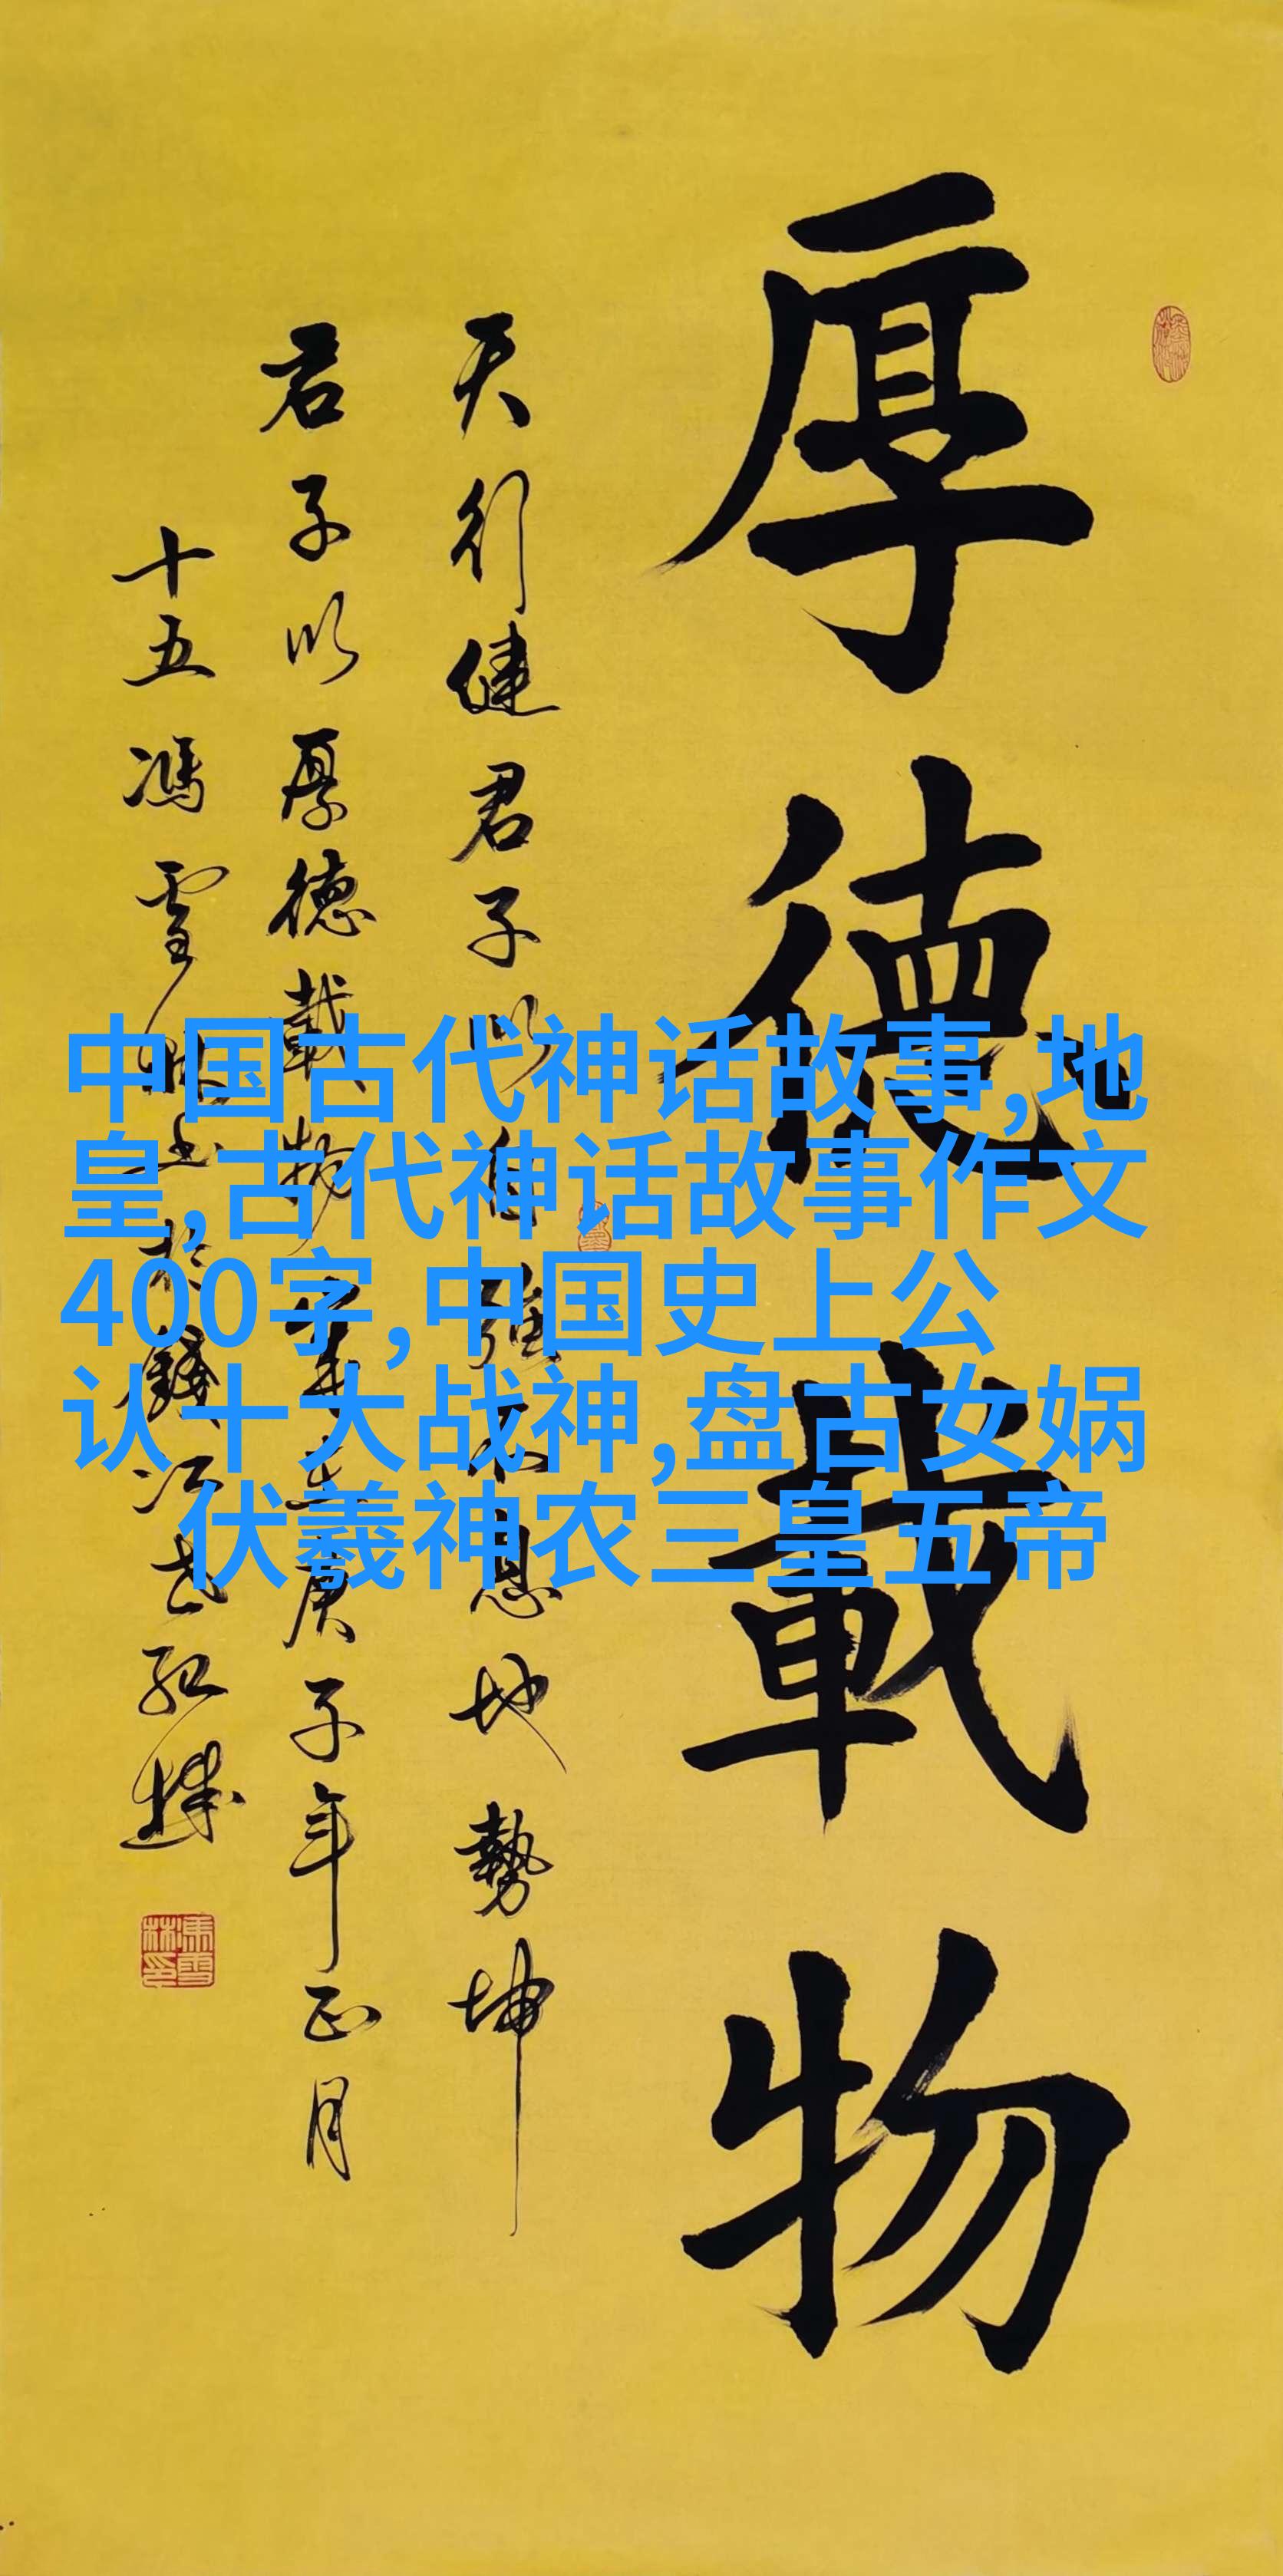 厚德載物
天行健君子以自強不息地勢坤
君子以厚德載物 庚子年正月
十五馮雪林書於錢江
馮雪林印
中国古代神话故事,地
皇,古代神话故事作文
400字,中国史上公
认十大战神,盘古女娲
伏羲神农三皇五帝